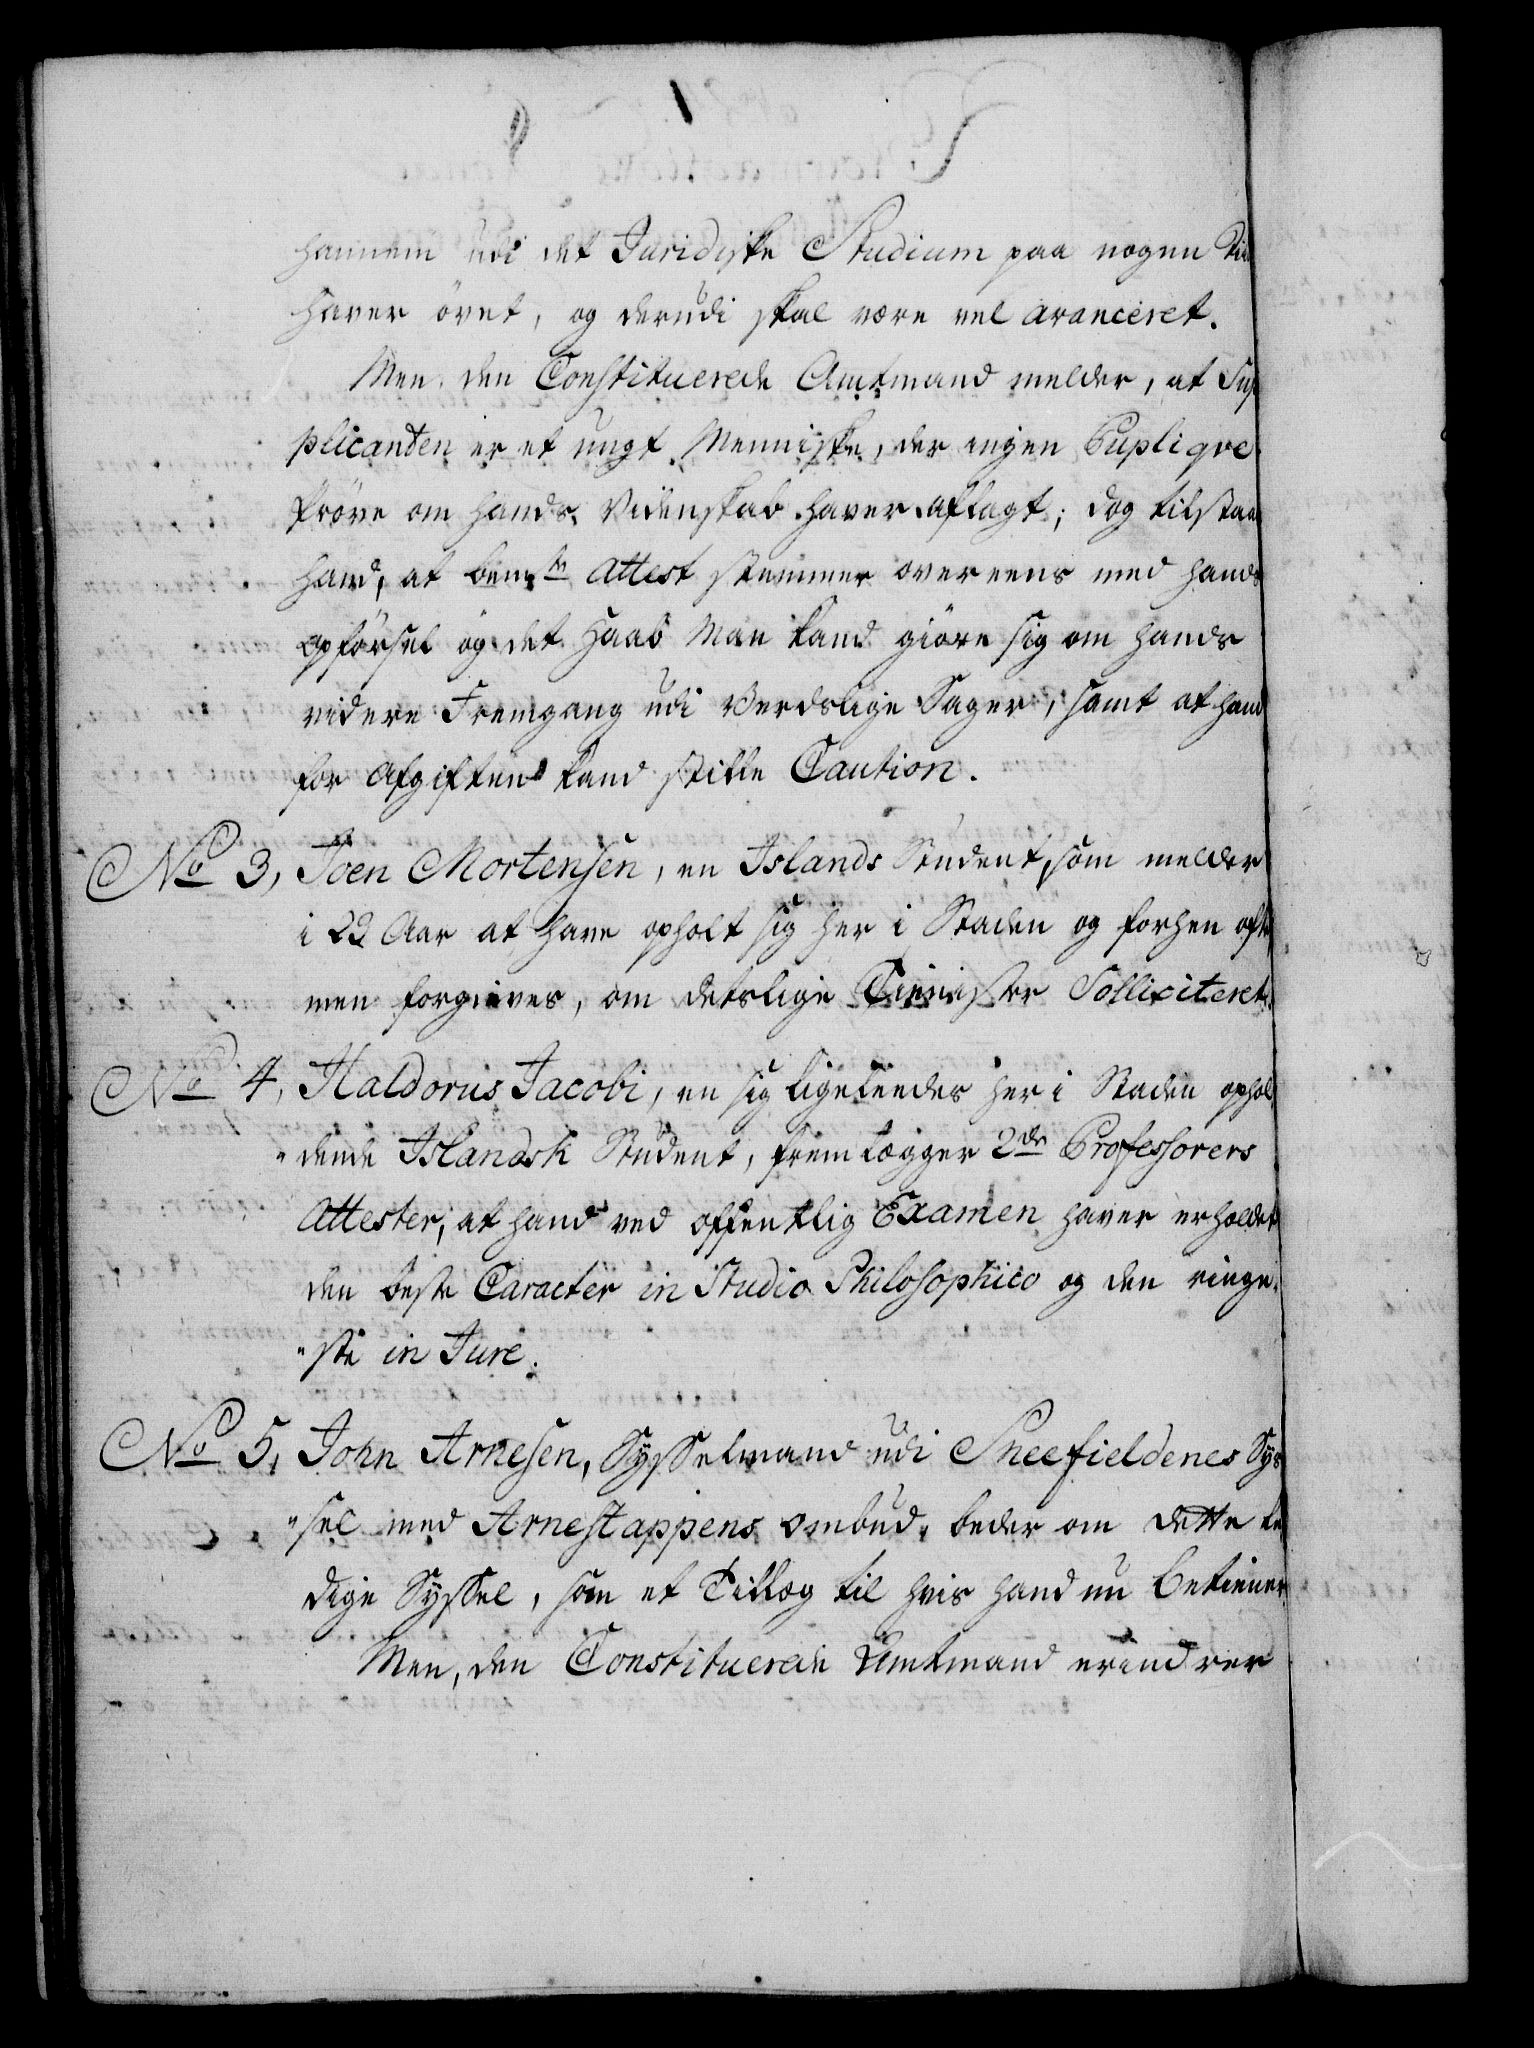 hannem udi det Juridiske Studium paa nogen Tiid
haver övet, og derudi skal være vel avanceret.
Men, den Constituerede Amtmand melder, at Sup
plicanten er et ungt Menniske, der ingen Puplique
Pröve om hands Videnskab haver aflagt; dog tilstaar
hand, at bem.te Attest stemmer overeens med hands
opförsel og det Haab Man kand giöre sig om hands
videre Fremgang udi Verdslige Sager, samt at hand
for Afgiften kand stille Caution.
No 3, Joen Mortensen, en Islands Student, som melder
i 22 Aar at have opholt sig her i Staden og forhen ofte,
men forgieves, om detslige Tienister Solliciteret.
No 4, Haldorus Jacobi, en sig ligeleedes her i Staden ophol
"dende Islandsk Student, fremlægger 2de Professorers
Attester, at hand ved offentlig Examen haver erholdet
den beste Caracter in Studio Philosophico og den ringe-
"ste in Jure.
No 5, John Arnesen, Sysselmand udi Sneefieldenes Sys
"sel med Arnestappens Ombud, beder om dette le
dige Syssel, som et Tillæg til hvis hand nu betiener.
Men, den Constituerede Amtmand erindrer